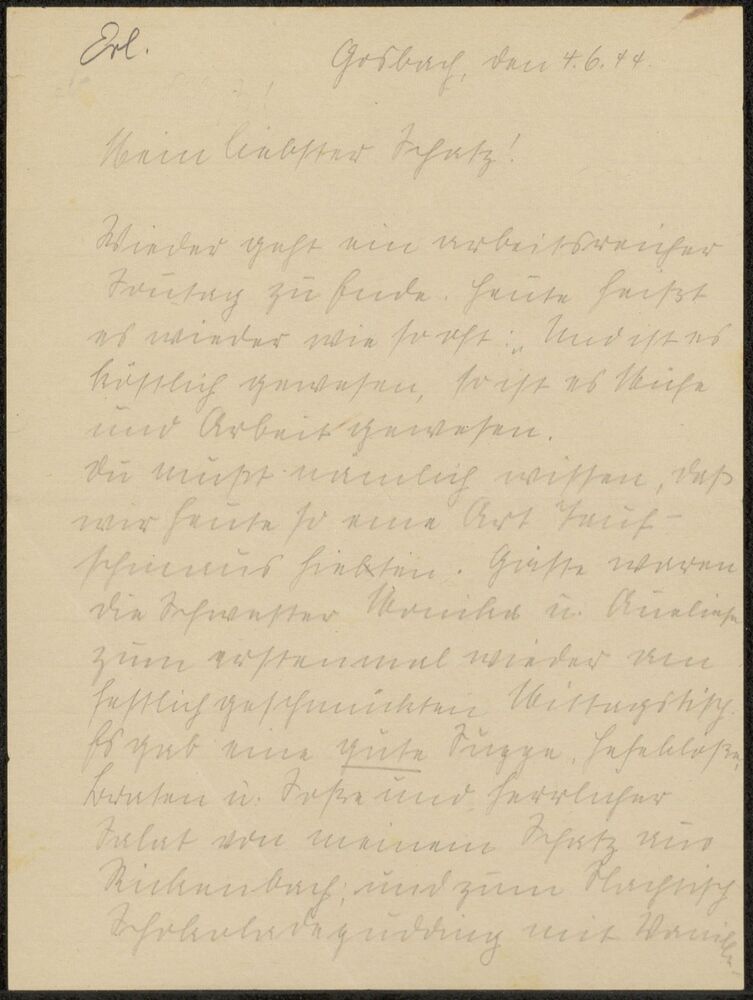 Erl.
Gosbach, den 4.6.44.
Mein liebster Schatz!
Wieder geht ein arbeitsreicher
Sontag zu Ende. Heute heißt
es wieder wie so oft: „Und ist es
köstlich gewesen, so ist es Mühe
und Arbeit gewesen.
Du mußt nämlich wissen, daß
wir heute so eine Art Tauf-
schmaus hielten. Gäste waren
die Schwester Monika u. Anneliese
zum erstenmal wieder am
festlich geschmückten Mittagstisch.
Es gab eine gute Suppe, Hefeklöße,
Braten u. Soße und herrlicher
Salat von meinem Schatz aus
Rickenbach, und zum Nachtisch
Schokoladepudding mit Vanille-